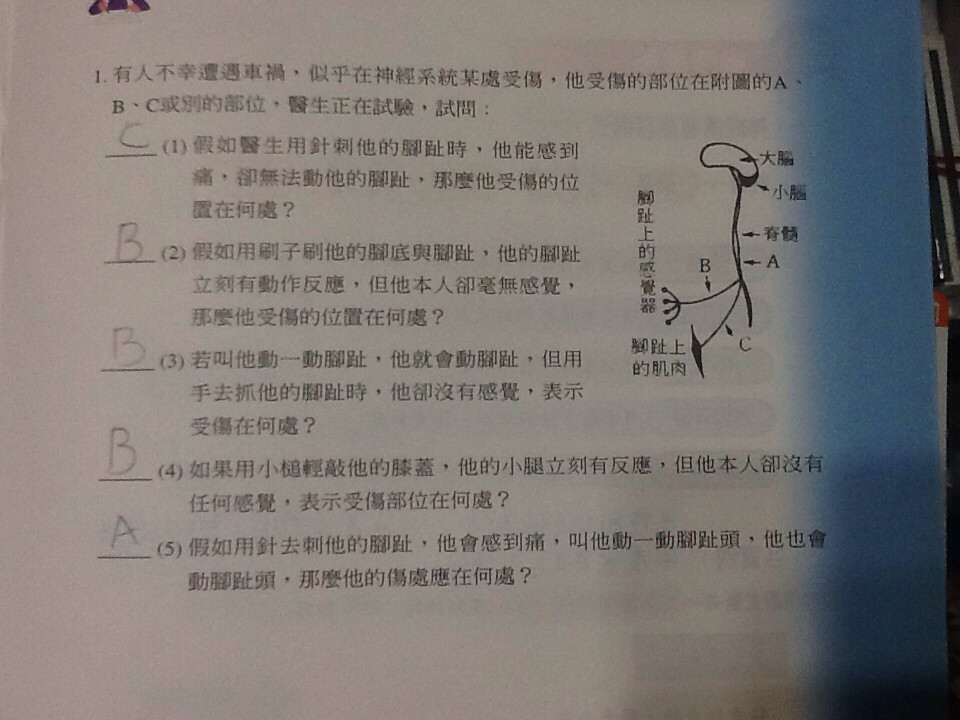 1. 有人不幸遭遇車禍，似乎在神經系統某處受傷，他受傷的部位在附圖的A、
B、C或別的部位，醫生正在試驗，試問：
C (1) 假如醫生用針刺他的腳趾時，他能感到
痛，卻無法動他的腳趾，那麼他受傷的位
置在何處？
B (2) 假如用刷子刷他的腳底與腳趾，他的腳趾
立刻有動作反應，但他本人卻毫無感覺，
那麼他受傷的位置在何處？
B (3) 若叫他動一動腳趾，他就會動腳趾，但用
手去抓他的腳趾時，他卻沒有感覺，表示
受傷在何處？
B (4) 如果用小槌輕敲他的膝蓋，他的小腿立刻有反應，但他本人卻沒有
任何感覺，表示受傷部位在何處？
A (5) 假如用針去刺他的腳趾，他會感到痛，叫他動一動腳趾頭，他也會
動腳趾頭，那麼他的傷處應在何處？
大腦
小腦
脊髓
A
腳趾上的感覺器
B
C
腳趾上
的肌肉